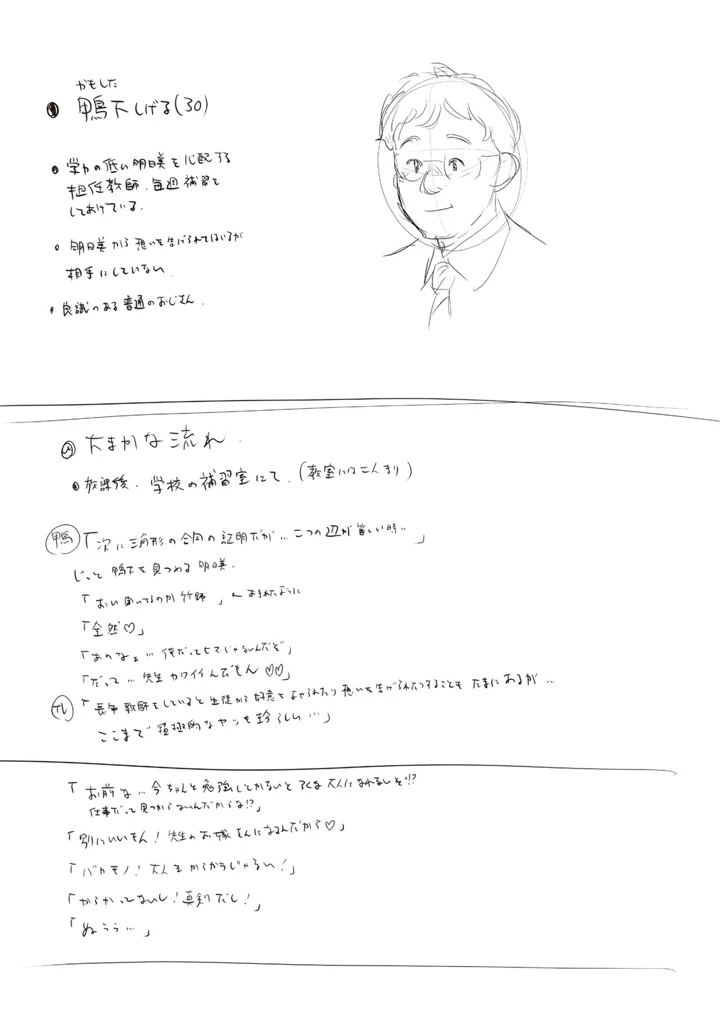 かもした
鴨下しげる(30)
学力の低い明日美を心配する
担任教師。毎週補習を
してあげている。
明日美から想いを告げられてはいるが
相手にしていない。
良識のある普通のおじさん。
大まかな流れ。
放課後。学校の補習室にて。(教室には二人きり)
鴨「次に三角形の合同の証明だが…二つの辺が等しい時…」
じっと鴨下を見つめる明日美。
「おい聞いてるのか竹師」←あきれたように
「全然♡」
「あのなぁ…俺だってヒマじゃないんだぞ」
「だって…先生カワイイんだもん♡♡」
「長年教師をしていると生徒から好意をよせられたり想いを告げられたりすることもたまにあるが…
ここまで積極的なヤツも珍らしい…」
「お前な…今ちゃんと勉強しておかないとロクな大人になれないぞ!?
仕事だって見つからないんだからな!?」
「別にいいもん!先生のお嫁さんになるんだから♡」
「バカモノ!大人をからかうじゃない!」
「からかってないし!真剣だし!」
「ぬうう…」